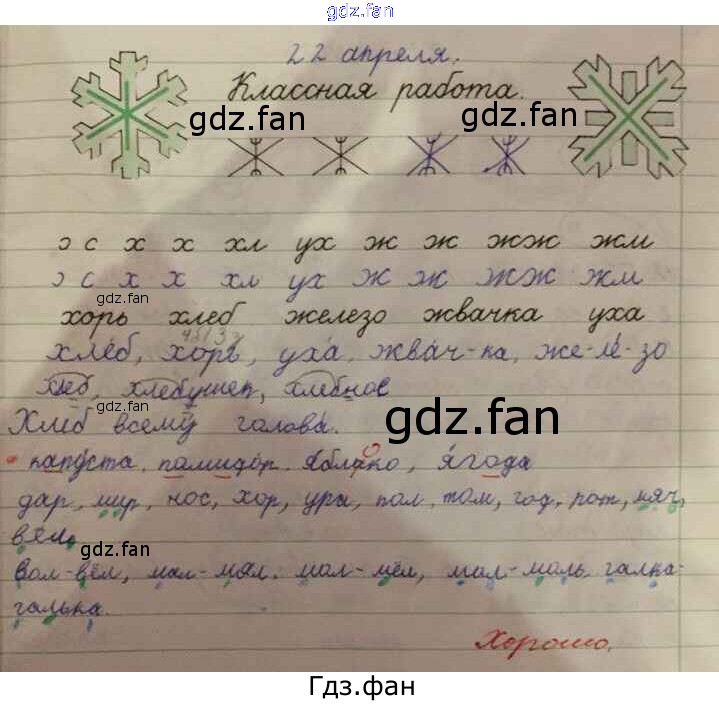 gdz.fan
22 апреля.
Классная работа.
gdz.fan gdz.fan
ɔ с х х хл ух ж ж жж жм
ɔ с х х хл ух ж ж жж жм
gdz.fan
хорь хлеб железо жвачка уха
хлеб, хорь, уха, жвач-ка, же-ле-зо
gdz.fan
хлеб, хлебушек, хлебное
Хлеб всему голова.
gdz.fan
капуста, помидор, яблоко, ягода
дар, мир, нос, хор, ура, пол, том, год, рот, мяч,
вёл,
gdz.fan
вол-вёл, мал-мял, мол-мёл, мал-моль, галка-
галька.
gdz.fan
Хорошо.
Гдз.фан